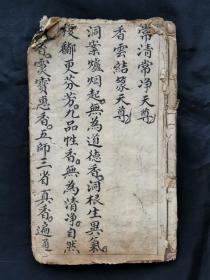 常清常净天尊
香雲結篆天尊
洞案爐烟起。無為道德香。洞根生異氣。
更芬芳。九品性香。無為清净自然
靈寶惠香。五師三省真香。遍通